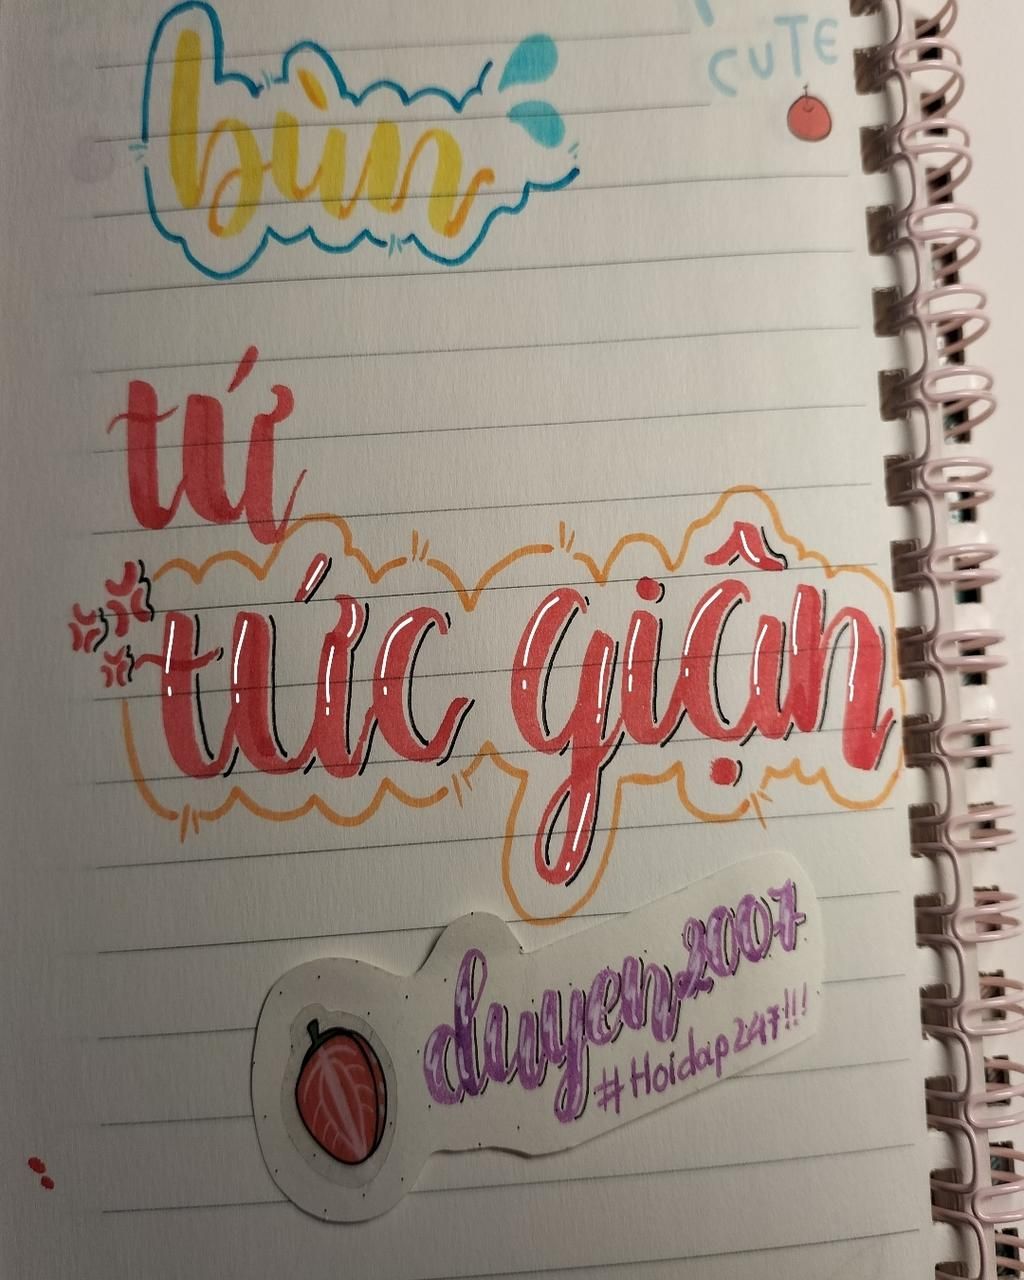 CUTE
bùn
tứ
tức giận
duyen2007
#Hoidap247!!!